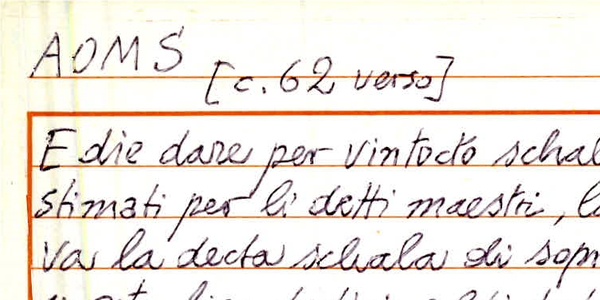 AOMS
[c. 62 verso]
E die dare per vintocto schal
stimati per li detti maestri, la
va la decta schala di sopr